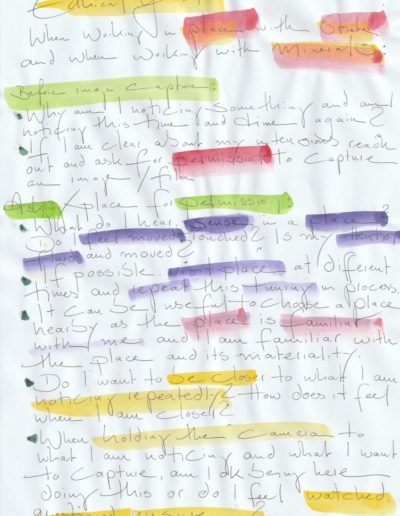 Ethical
When working in place with Others
and when working with Minerals:
Before image Capture:
Why am I noticing something and am I
noticing this time and time again?
If I am clear about my intensions reach
out and ask for permission to Capture
an image / film
Ask place for permission
What do I hear, sense in a place?
Do I feel moved, touched? Is my
fluid and moved?
If possible, visit place at diferent
times and repeat this timing in process.
It can be useful to choose a place
nearby as the place is familiar
with me and I am familiar with
the place and its materiality.
Do I want to be closer to what I am
noticing repeatedly? How does it feel
when I am closer?
When holding the camera to
what I am noticing and what I want
to Capture, am I ok being here
doing this or do I feel watched,